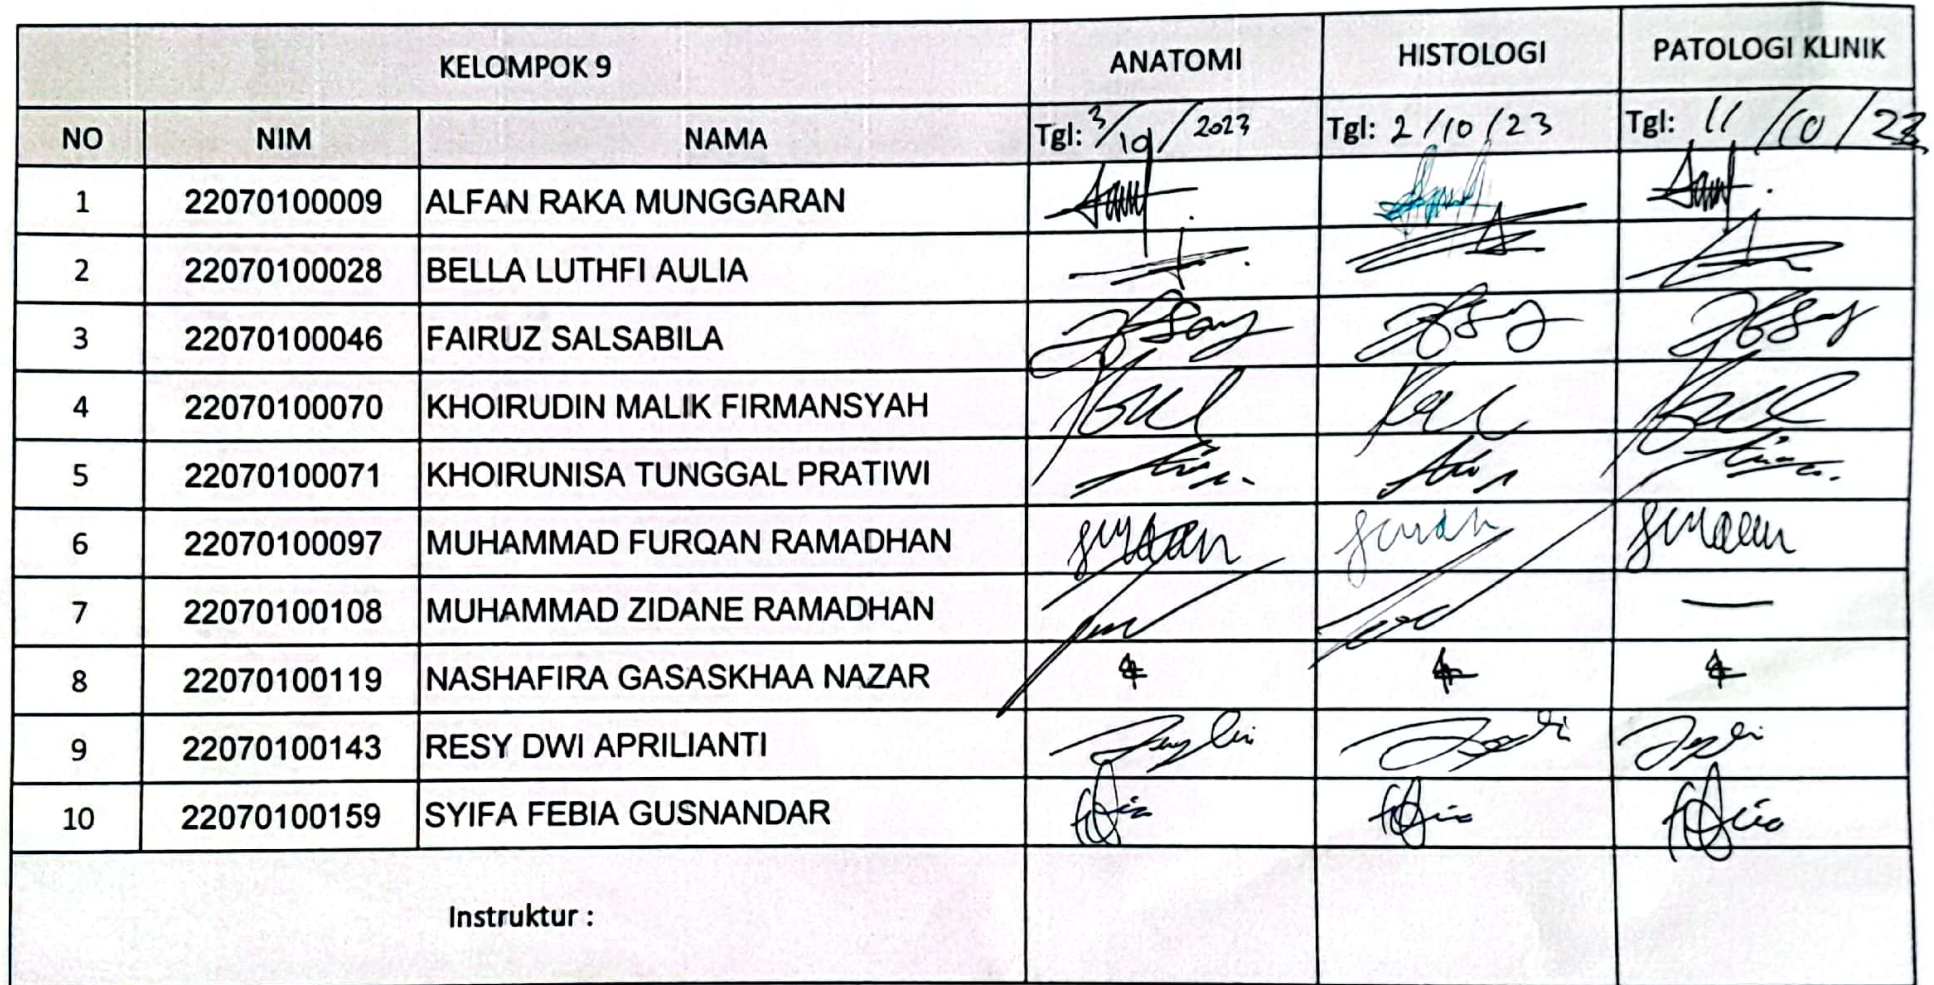 KELOMPOK 9 ANATOMI HISTOLOGI PATOLOGI KLINIK
NO NIM NAMA Tgl: 3/10/2023 Tgl: 2/10/23 Tgl: 11/10/23
1 22070100009 ALFAN RAKA MUNGGARAN
2 22070100028 BELLA LUTHFI AULIA
3 22070100046 FAIRUZ SALSABILA
4 22070100070 KHOIRUDIN MALIK FIRMANSYAH
5 22070100071 KHOIRUNISA TUNGGAL PRATIWI
6 22070100097 MUHAMMAD FURQAN RAMADHAN
7 22070100108 MUHAMMAD ZIDANE RAMADHAN —
8 22070100119 NASHAFIRA GASASKHAA NAZAR
9 22070100143 RESY DWI APRILIANTI
10 22070100159 SYIFA FEBIA GUSNANDAR
Instruktur :